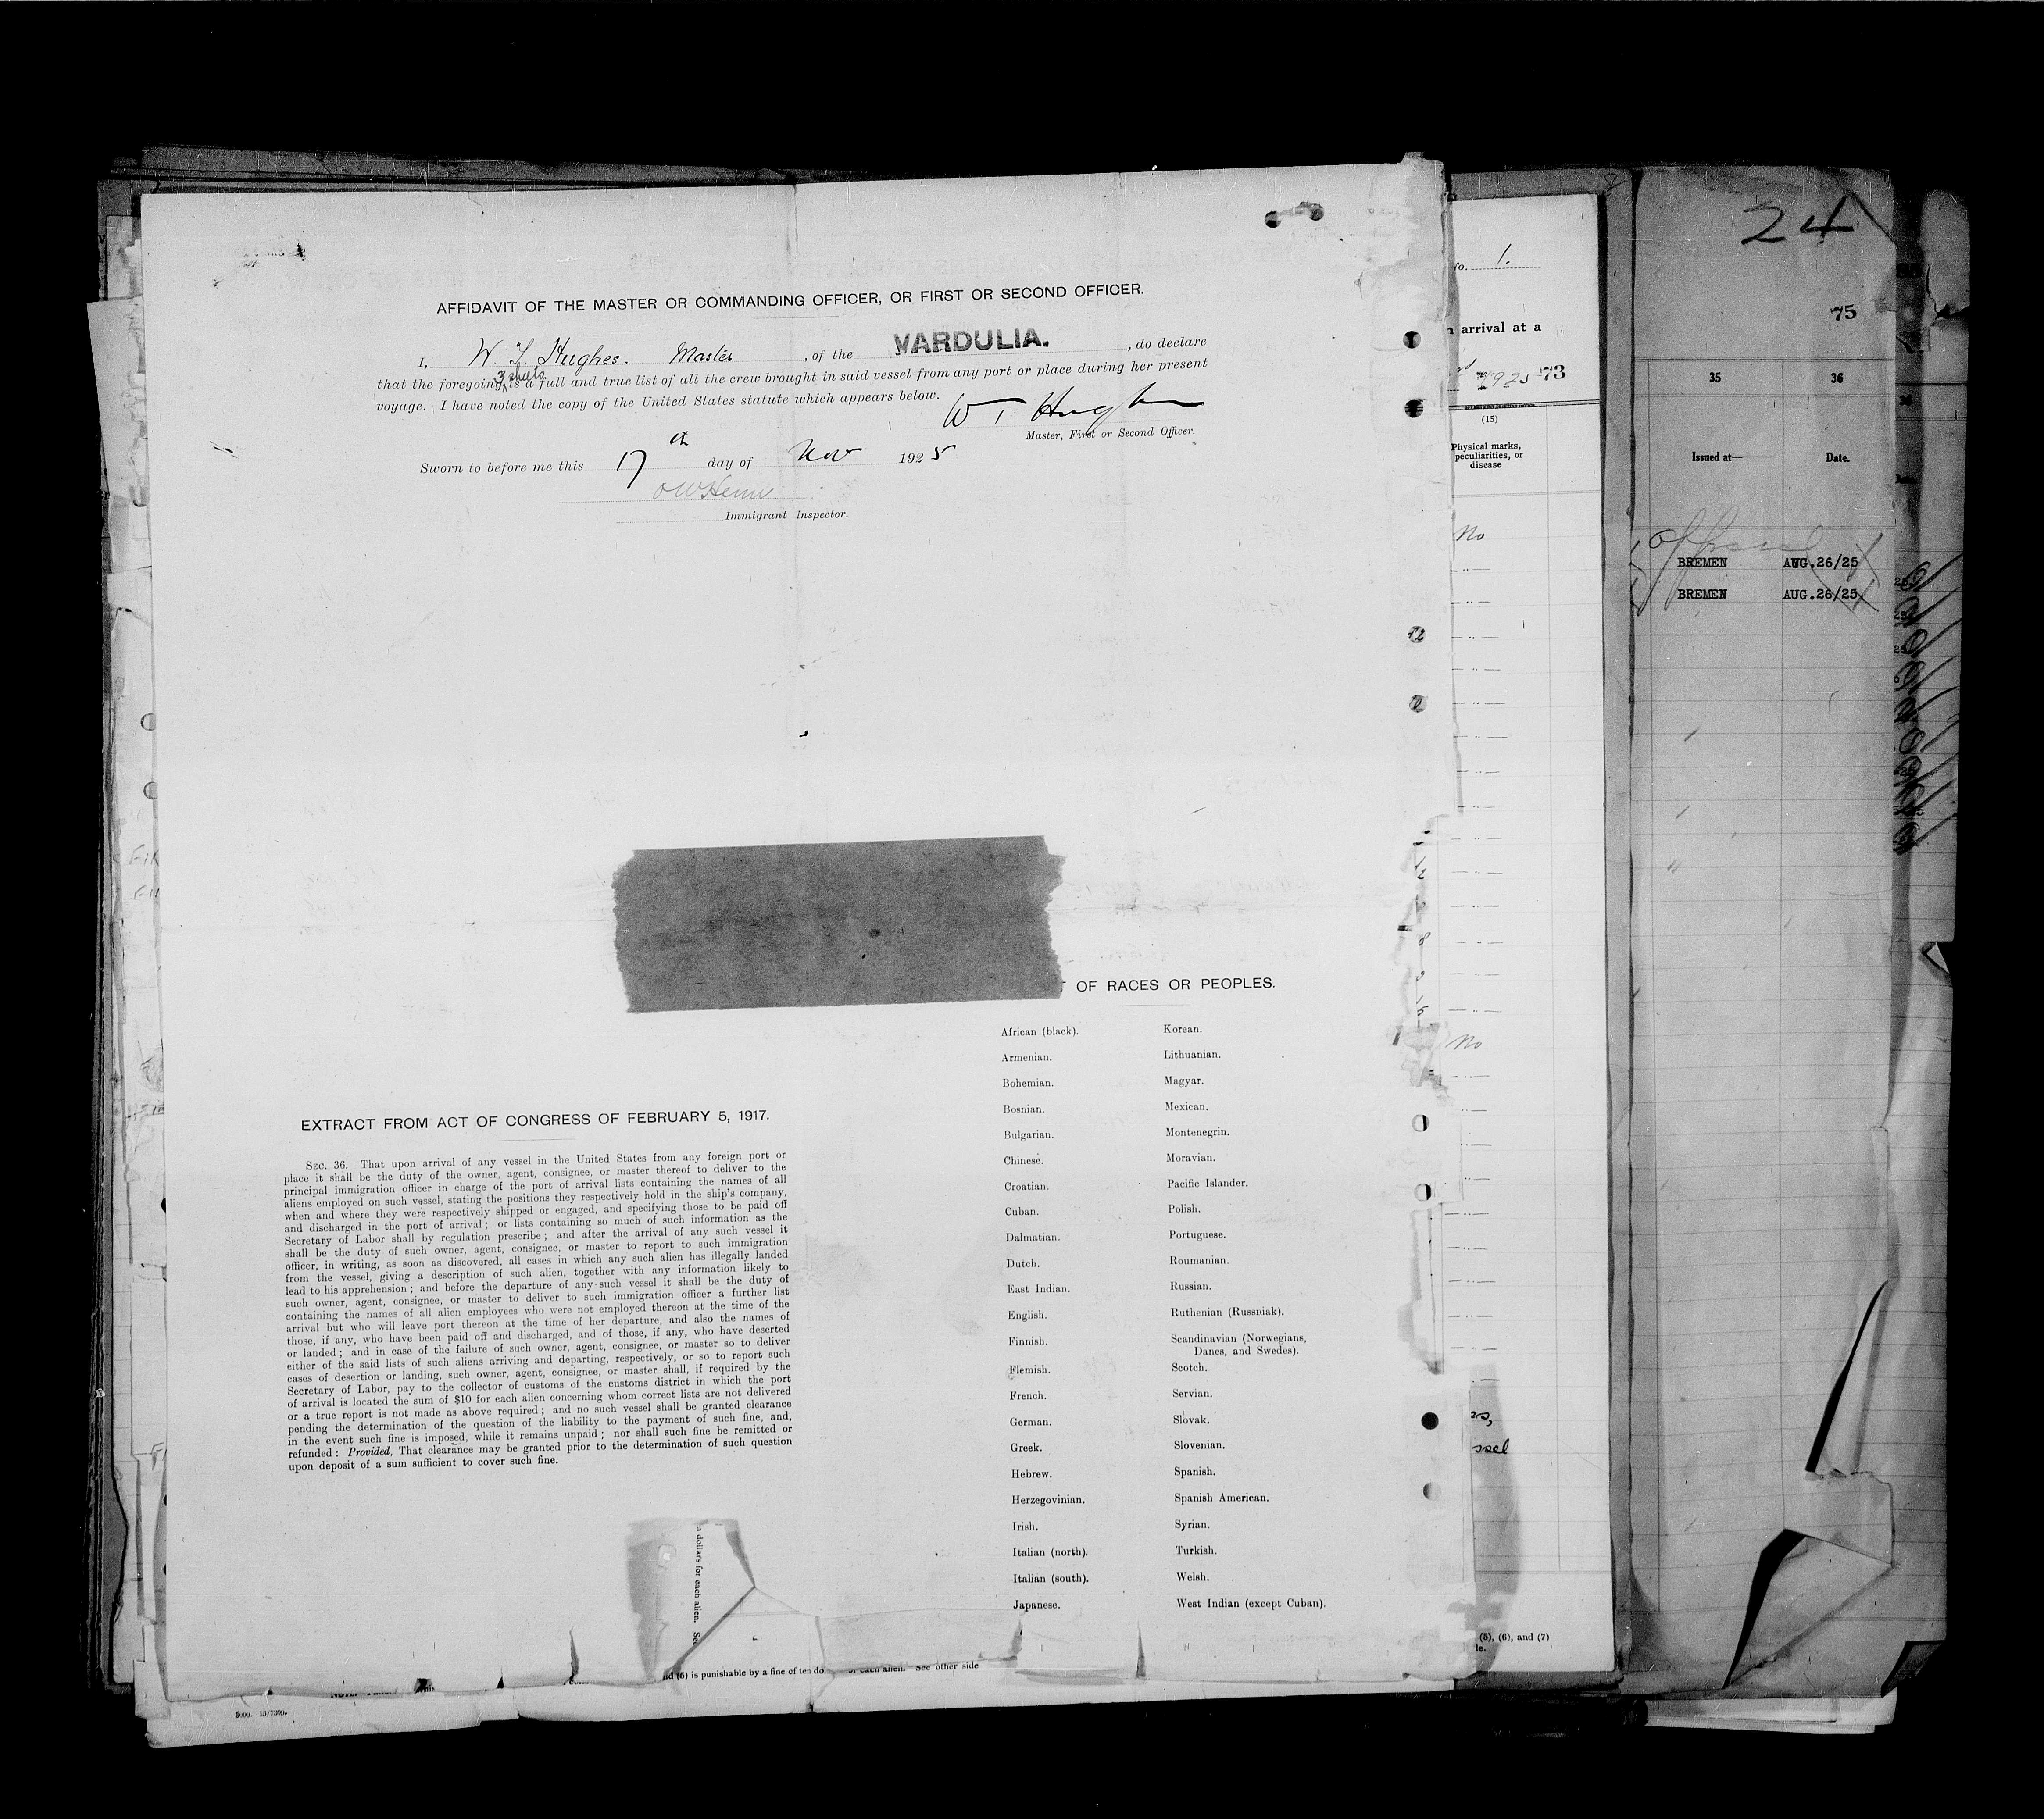 AFFIDAVIT OF THE MASTER OR COMMANDING OFFICER, OR FIRST OR SECOND OFFICER.
I, W. T. Hughes. Master, of the VARDULIA., do declare
3 sheets
that the foregoing is a full and true list of all the crew brought in said vessel from any port or place during her present
voyage. I have noted the copy of the United States statute which appears below.
W T Hughes
Master, First or Second Officer.
Sworn to before me this 17th day of Nov 1925
Immigrant Inspector.
OF RACES OR PEOPLES.
African (black). Korean.
Armenian. Lithuanian.
Bohemian. Magyar.
Bosnian. Mexican.
Bulgarian. Montenegrin.
Chinese. Moravian.
Croatian. Pacific Islander.
Cuban. Polish.
Dalmatian. Portuguese.
Dutch. Roumanian.
East Indian. Russian.
English. Ruthenian (Russniak).
Finnish. Scandinavian (Norwegians,
Danes, and Swedes).
Flemish. Scotch.
French. Servian.
German. Slovak.
Greek. Slovenian.
Hebrew. Spanish.
Herzegovinian. Spanish American.
Irish. Syrian.
Italian (north). Turkish.
Italian (south). Welsh.
Japanese. West Indian (except Cuban).
EXTRACT FROM ACT OF CONGRESS OF FEBRUARY 5, 1917.
SEC. 36. That upon arrival of any vessel in the United States from any foreign port or
place it shall be the duty of the owner, agent, consignee, or master thereof to deliver to the
principal immigration officer in charge of the port of arrival lists containing the names of all
aliens employed on such vessel, stating the positions they respectively hold in the ship's company,
when and where they were respectively shipped or engaged, and specifying those to be paid off
and discharged in the port of arrival; or lists containing so much of such information as the
Secretary of Labor shall by regulation prescribe; and after the arrival of any such vessel it
shall be the duty of such owner, agent, consignee, or master to report to such immigration
officer, in writing, as soon as discovered, all cases in which any such alien has illegally landed
from the vessel, giving a description of such alien, together with any information likely to
lead to his apprehension; and before the departure of any such vessel it shall be the duty of
such owner, agent, consignee, or master to deliver to such immigration officer a further list
containing the names of all alien employees who were not employed thereon at the time of the
arrival but who will leave port thereon at the time of her departure, and also the names of
those, if any, who have been paid off and discharged, and of those, if any, who have deserted
or landed; and in case of the failure of such owner, agent, consignee, or master so to deliver
either of the said lists of such aliens arriving and departing, respectively, or so to report such
cases of desertion or landing, such owner, agent, consignee, or master shall, if required by the
Secretary of Labor, pay to the collector of customs of the customs district in which the port
of arrival is located the sum of $10 for each alien concerning whom correct lists are not delivered
or a true report is not made as above required; and no such vessel shall be granted clearance
pending the determination of the question of the liability to the payment of such fine, and,
in the event such fine is imposed, while it remains unpaid; nor shall such fine be remitted or
refunded: Provided, That clearance may be granted prior to the determination of such question
upon deposit of a sum sufficient to cover such fine.
dollars for each alien. See
(6) is punishable by a fine of ten do
each alien. See other side
1.
arrival at a
1925 73
(15)
Physical marks,
peculiarities, or
disease
No
No
ssel
(5), (6), and (7)
24
75
35 36
Issued at— Date.
BREMEN AUG.26/25
BREMEN AUG.26/25